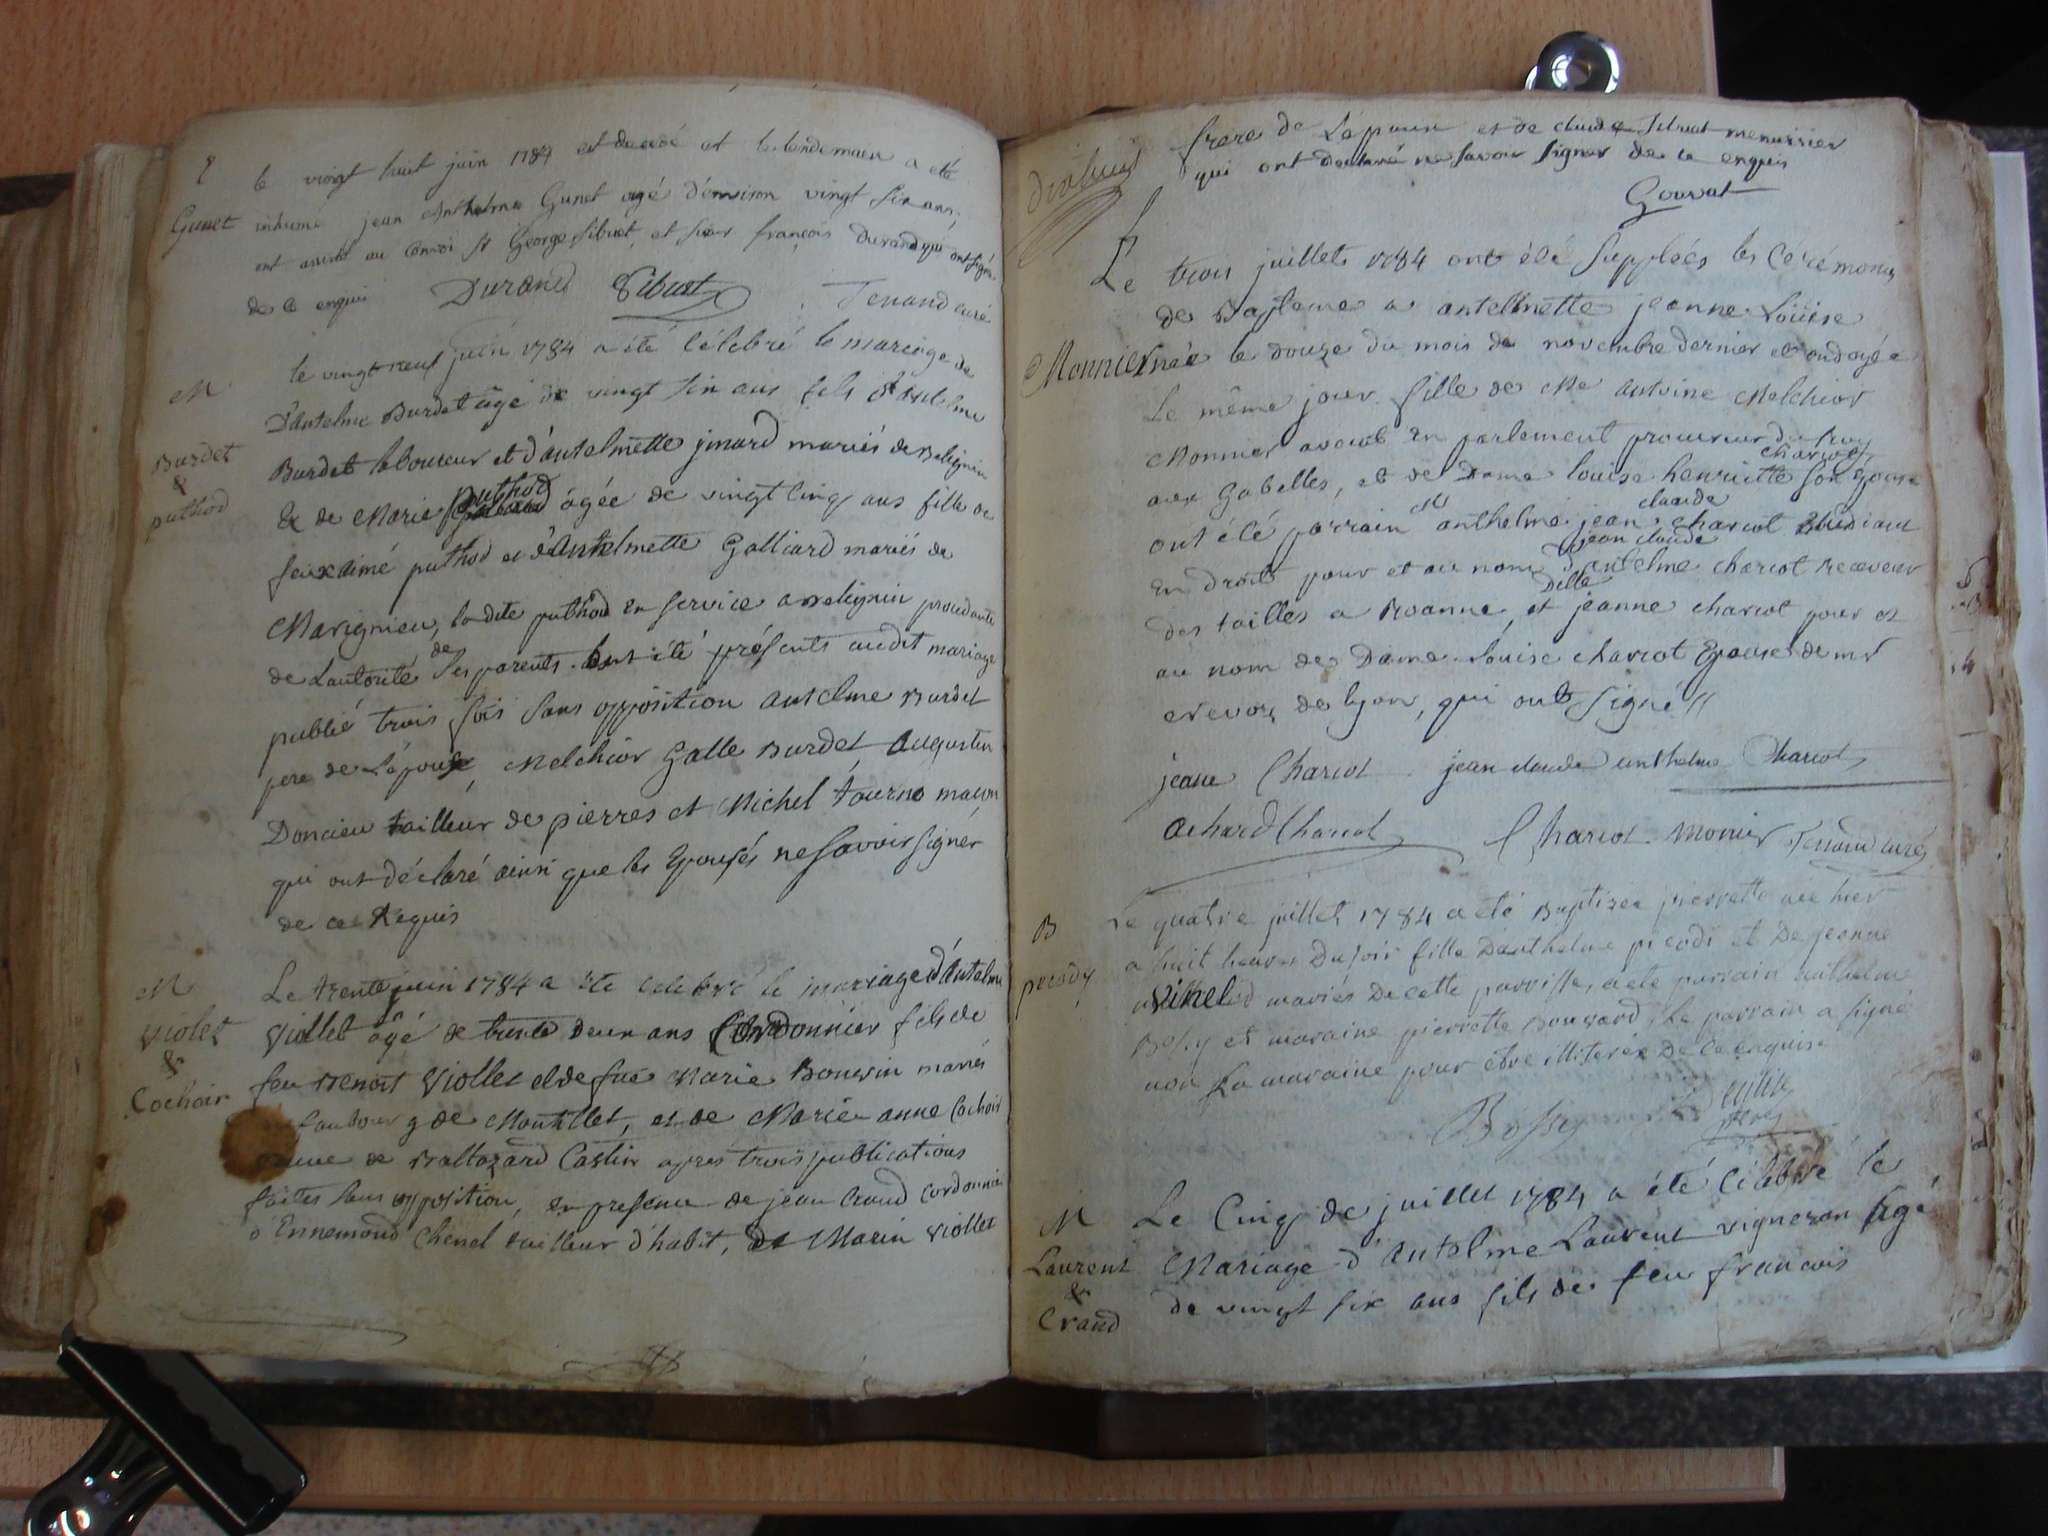 le vingt huit juin 1784 est decedé et le lendemain a été
Gunet
inhumé jean Anthelme Gunet agé d'environ vingt six ans,
ont assisté au convoi Sr George Sibuet, et sieur françois Durand qui ont signé
de ce enquis Durand Sibuet Tenand curé
M
Burdet
&
puthod
le vingt neuf juin 1784 a été célébré le mariage de
D'antelme Burdet âgé de vingt six ans fils d'antelme
Burdet laboureur et d'antelmette jinard mariés de Belignin
Et de Marie puthod âgée de vingt cinq ans fille de
feu aimé puthod et d'Antelmette Galliard mariés de
Marignieu, la dite puthod en service a Belignin
de Lautorité de ses parents ont été présents audit mariage
publié trois fois sans opposition antelme Burdet
pere de L'époux, Melchior Galle Burdet, Augustin
Doncieu tailleur de pierres et Michel tourno macon
qui ont déclaré ainsi que les Epousés ne savoir signer
de ce Requis
M
Violet
&
Cochoir
Le trente juin 1784 a été célébré le mariage d'Antelme
Viollet âgé de trente deux ans Cordonnier fils de
feu Benoit Viollet et de fue Marie Bouvin mariés
faubourg de Mouillet, et de Marie anne Cochois
veuve de Baltazard Castin après trois publications
faites sans opposition, en presence de jean Craud cordonnier
d'Ennemond Chenel tailleur d'habit, de Marin Viollet
frere de L'epoux et de claude Sibuet menuisier
qui ont declaré ne savoir signer de ce enquis
Gouvat
Le trois juillet 1784 ont été Suppléés les Cérémonies
de Bapteme a antelmette jeanne Louise
Monnier née le douze du mois de novembre dernier et ondoyée
Le même jour fille de Me antoine Melchior
Monnier avocat en parlement procureur du Roy
charcot
aux Gabelles, et de Dame louise henriette son Epouse
claude
ont été parrain Mr anthelme jean charcot Etudiant
jean claude
en droit pour et au nom d'antelme charcot Receveur
Dlle
des tailles a Roanne, et jeanne charcot pour et
au nom de Dame Louise charcot Epouse de mr
de lyon, qui ont signé //
jeane Charcot jean claude anthelme Charcot
achard Charcot Charcot monier Tenand curé
B
picôdy
Le quatre juillet 1784 a été Baptizée pierrette née hier
a huit heures du soir fille D'anthelme picodi et De jeanne
Vinel mariés De cette parroisse, a été parrain anthelme
Bossy et maraine pierrette Bouvard, Le parrain a signé
non La maraine pour être illiterée De ce enquise
Bossy
M
Laurent
&
Craud
Le Cinq de juillet 1784 a été célébré le
Mariage d'Antelme Laurent vigneron âgé
de vingt six ans fils de feu francois